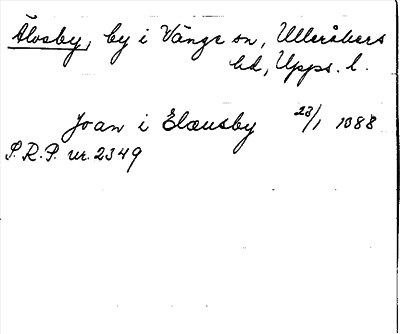 Älvsby, by i Vänge sn, Ulleråkers
hd, Upps. l.
Joan i Elausby 23/1 1388
S.R.P. nr. 2349